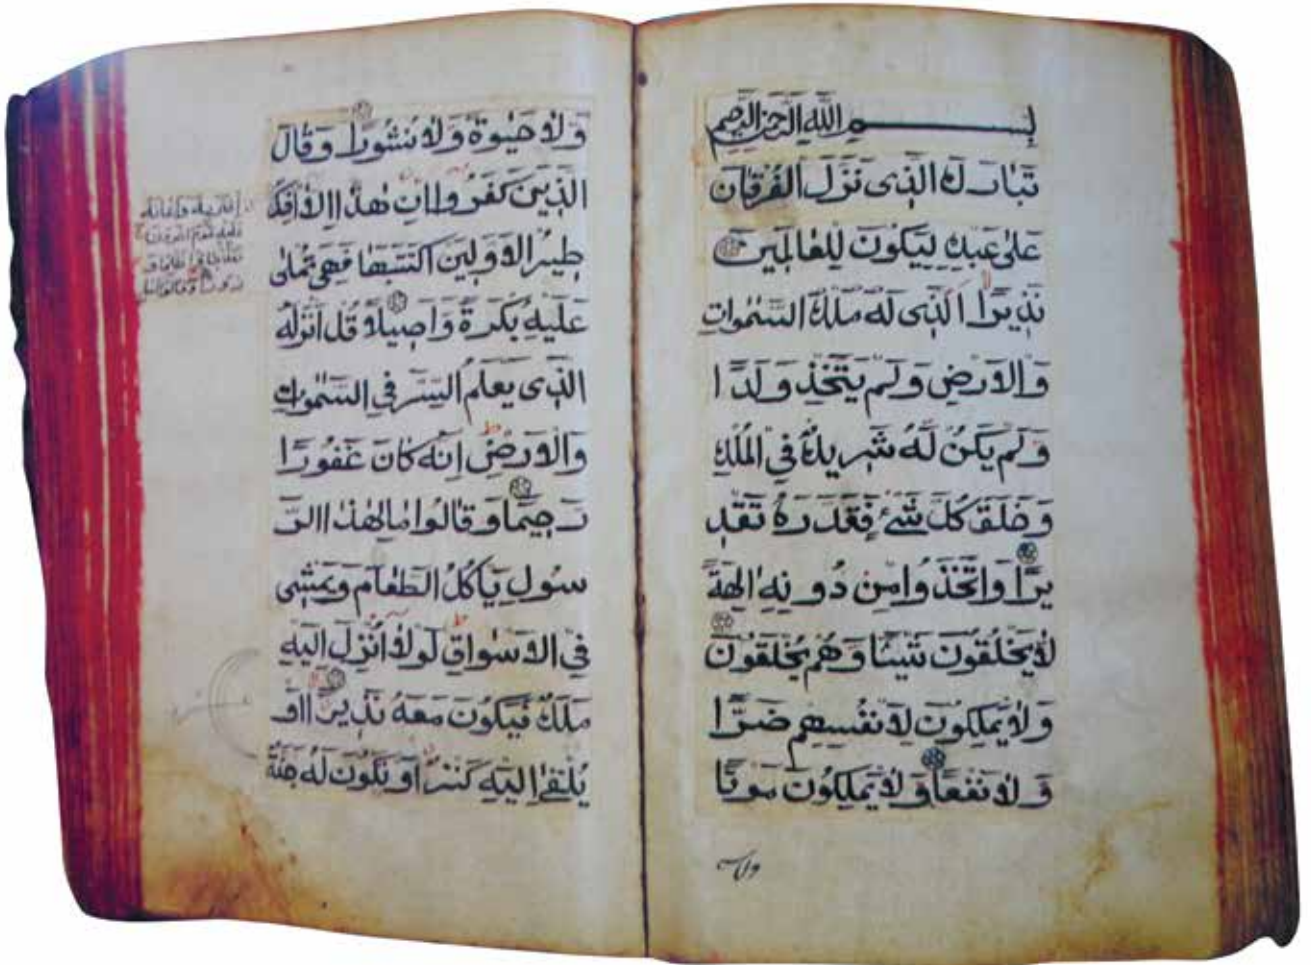 بسم الله الرحمن الرحيم
تَبَارَكَ الَّذِى نَزَّلَ الْفُرْقَانَ
عَلىٰ عَبْدِهِ لِيَكُونَ لِلْعَالَمِينَ
نَذِيرًا الَّذِى لَهُ مُلْكُ السَّمٰوَاتِ
وَالْاَرْضِ وَلَمْ يَتَّخِذْ وَلَدًا
وَلَمْ يَكُنْ لَهُ شَرِيكٌ فِى الْمُلْكِ
وَخَلَقَ كُلَّ شَىْءٍ فَقَدَّرَهُ تَقْدِ
يرًا وَاتَّخَذُوا مِنْ دُونِهِ اٰلِهَةً
لَا يَخْلُقُونَ شَيْئًا وَهُمْ يُخْلَقُونَ
وَلَا يَمْلِكُونَ لِاَنْفُسِهِمْ ضَرًّا
وَلَا نَفْعًا وَلَا يَمْلِكُونَ مَوْتًا
ولا
وَلَا حَيٰوةً وَلَا نُشُورًا وَقَالَ
الَّذِينَ كَفَرُوا اِنْ هٰذَا اِلَّا اِفْكٌ
طِيرُ الْاَوَّلِينَ اكْتَتَبَهَا فَهِىَ تُمْلىٰ
عَلَيْهِ بُكْرَةً وَاَصِيلًا قُلْ اَنْزَلَهُ
الَّذِى يَعْلَمُ السِّرَّ فِى السَّمٰوَاتِ
وَالْاَرْضِ اِنَّهُ كَانَ غَفُورًا
رَحِيمًا وَقَالُوا مَالِ هٰذَا الرَّ
سُولِ يَاْكُلُ الطَّعَامَ وَيَمْشِى
فِى الْاَسْوَاقِ لَوْلَا اُنْزِلَ اِلَيْهِ
مَلَكٌ فَيَكُونَ مَعَهُ نَذِيرًا اَوْ
يُلْقىٰ اِلَيْهِ كَنْزٌ اَوْ تَكُونُ لَهُ جَنَّةٌ